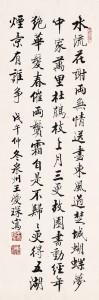 水流花謝兩無情送盡東風過楚城蝴蝶夢
中家萬里杜鵑枝上月三更故園書動經年
絕華髮春催兩鬢霜自是不歸歸便得五湖
煙景有誰爭 戊午仲冬泉州王愛琛寫